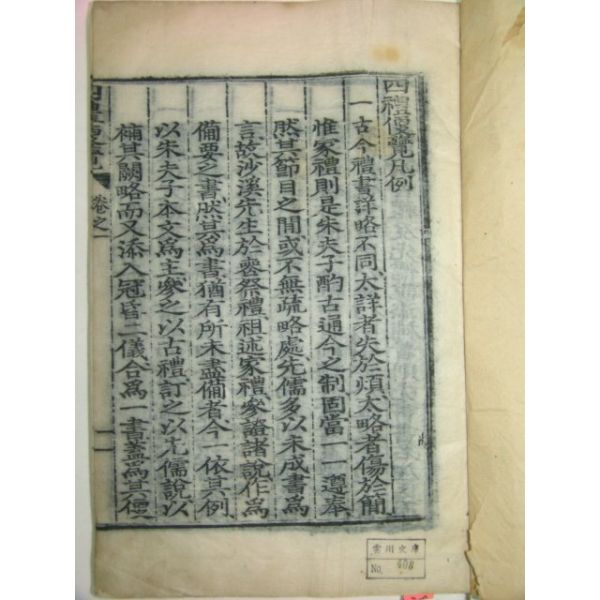 四禮便覽凡例
一古今禮書詳略不同太詳者失於煩太略者傷於簡
惟家禮則是朱夫子酌古通今之制固當一一遵奉
然其節目之間或不無疏略處先儒多以未成書爲
言故沙溪先生於喪祭禮祖述家禮參證諸說作爲
備要之書然其爲書猶有所未盡備者今一依其例
以朱夫子本文爲主參之以古禮訂之以先儒說以
補其闕略而又添入冠昏二儀合爲一書蓋爲其便
四禮便覽 卷之一
雲川文庫
No. 408